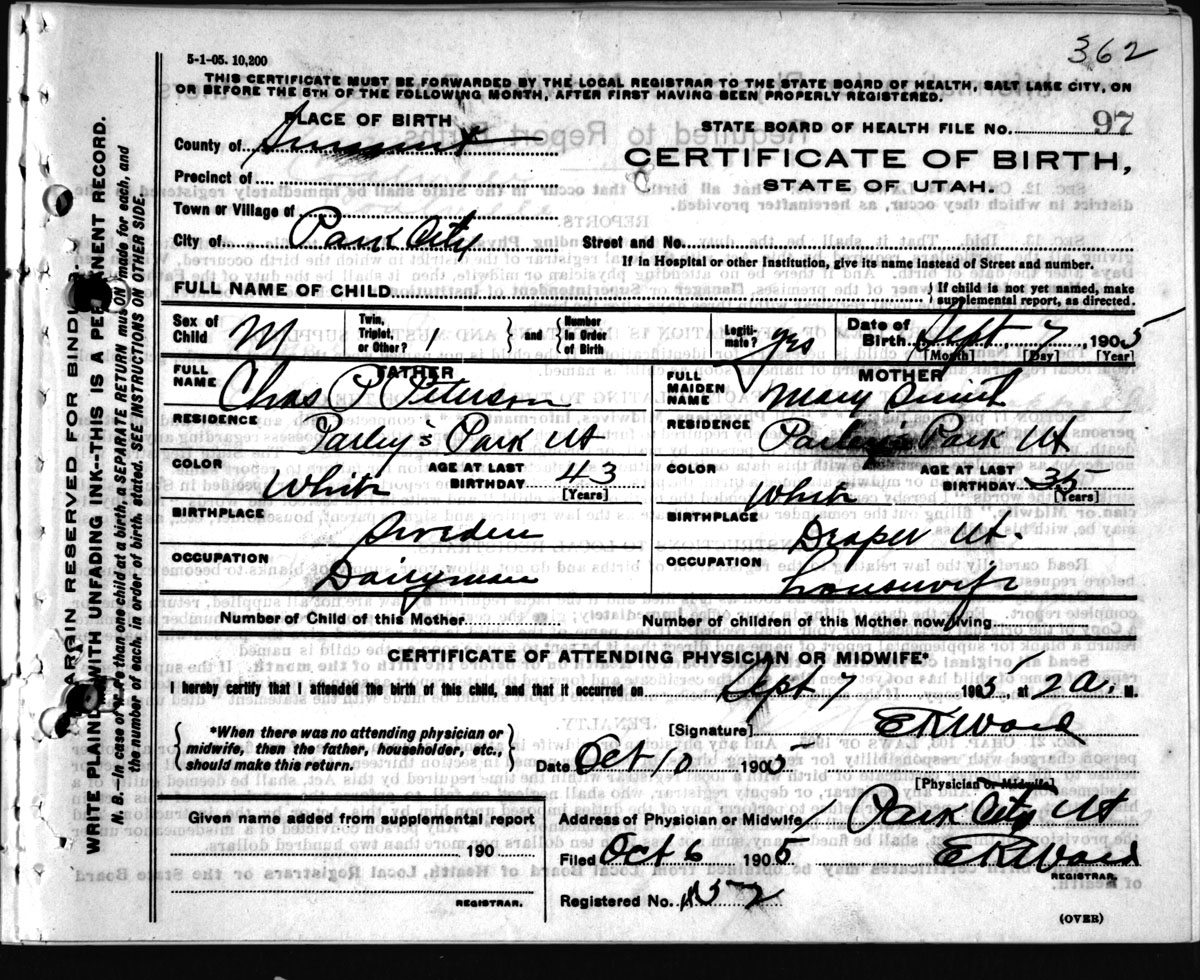 362
5-1-05. 10,200
THIS CERTIFICATE MUST BE FORWARDED BY THE LOCAL REGISTRAR TO THE STATE BOARD OF HEALTH, SALT LAKE CITY, ON
OR BEFORE THE 5TH OF THE FOLLOWING MONTH, AFTER FIRST HAVING BEEN PROPERLY REGISTERED.
PLACE OF BIRTH
STATE BOARD OF HEALTH FILE NO. 97
County of Summit
CERTIFICATE OF BIRTH,
Precinct of
STATE OF UTAH.
Town or Village of
City of Park City Street and No.
If in Hospital or other Institution, give its name instead of Street and number.
FULL NAME OF CHILD } If child is not yet named, make
supplemental report, as directed.
Sex of Child M Twin, Triplet, or Other? 1 } and { Number In Order of Birth Legiti-mate? yes Date of Birth Sept 7 1905
[Month] [Day] [Year]
FATHER
FULL NAME Chas P Peterson
RESIDENCE Parley's Park Ut
COLOR White AGE AT LAST BIRTHDAY 43
[Years]
BIRTHPLACE Sweden
OCCUPATION Dairyman
MOTHER
FULL MAIDEN NAME Mary Smith
RESIDENCE Parley's Park Ut
COLOR White AGE AT LAST BIRTHDAY 35
[Years]
BIRTHPLACE Draper Ut.
OCCUPATION housewife
Number of Child of this Mother Number of children of this Mother now living
CERTIFICATE OF ATTENDING PHYSICIAN OR MIDWIFE*
I hereby certify that I attended the birth of this child, and that it occurred on Sept 7 1905, at 2 a. M.
*When there was no attending physician or
midwife, then the father, householder, etc.,
should make this return.
[Signature] E R Ward
Date Oct 10 1905
[Physician or Midwife]
Address of Physician or Midwife Park City Ut
Filed Oct 6 1905 E R Ward
REGISTRAR.
Registered No. 152
Given name added from supplemental report
190
REGISTRAR.
(OVER)
MARGIN RESERVED FOR BINDING.
WRITE PLAINLY WITH UNFADING INK--THIS IS A PERMANENT RECORD.
N. B.--In case of more than one child at a birth, a SEPARATE RETURN must be made for each, and
the number of each, in order of birth, stated. SEE INSTRUCTIONS ON OTHER SIDE.